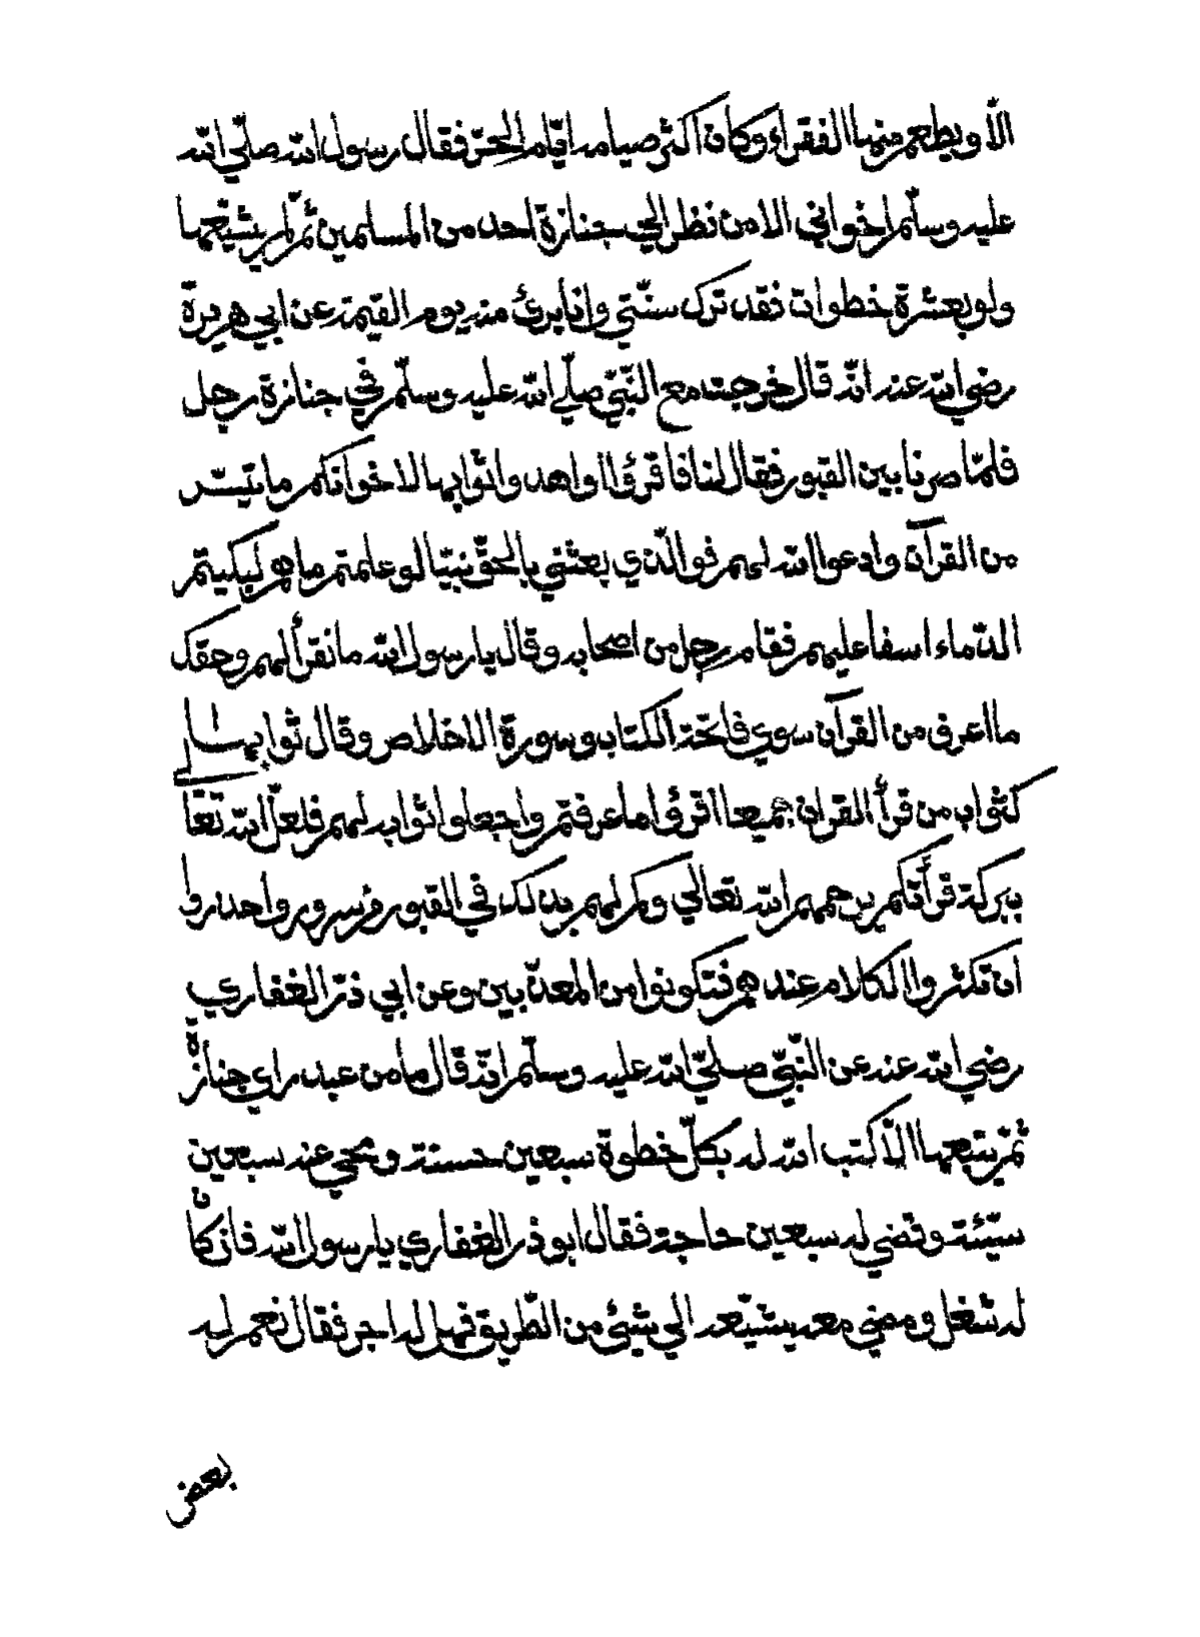 الّا ويطعم منها الفقراء وكان اكثر صيامه ايّام الحرّ فقال رسول الله صلّي الله
عليه وسلّم اخواني الا من نظر الي جنازة احد من المسلمين ثمّ لم يشيّعها
ولو بعشرة خطوات فقد ترك سنّتي وانا برئ منه يوم القيمة عن ابي هريرة
رضي الله عنه انّه قال خرجت مع النّبيّ صلّي الله عليه وسلّم في جنازة رجل
فلمّا صرنا بين القبور فقال لنا فاقرؤا واهدوا ثوابها لاخوانكم ما تيسّر
من القرآن وادعوا الله لهم فو الّذي بعثني بالحقّ نبيّا لو علمتم ما هم لبكيتم
الدّماء اسفا عليهم فقام رجل من اصحابه وقال يا رسول الله ما نقرأ لهم وحقك
ما اعرف من القرآن سوي فاتحة الكتاب وسورة الاخلاص وقال ثوابها
كثواب من قرأ القران جميعا اقرؤا ما عرفتم واجعلوا ثوابه لهم فلعلّ الله تعا
ببركة قرأتكم يرحمهم الله تعالي وكم لهم بذلك في القبور من سرور واحذروا
ان تكثروا الكلام عندهم فتكونوا من المعذّبين وعن ابي ذرّ الغفاري
رضي الله عنه عن النّبيّ صلّي الله عليه وسلّم انّه قال ما من عبد راي جنازة
ثمّ يتبعها الّا كتب الله له بكلّ خطوة سبعين حسنة ومحي عنه سبعين
سيّئة وقضي له سبعين حاجة فقال ابو ذر الغفاري يا رسول الله فان كان
له شغل ومضي معه يشيّعه الي شيئ من الطّريق فهل له اجر فقال نعم له
بعض